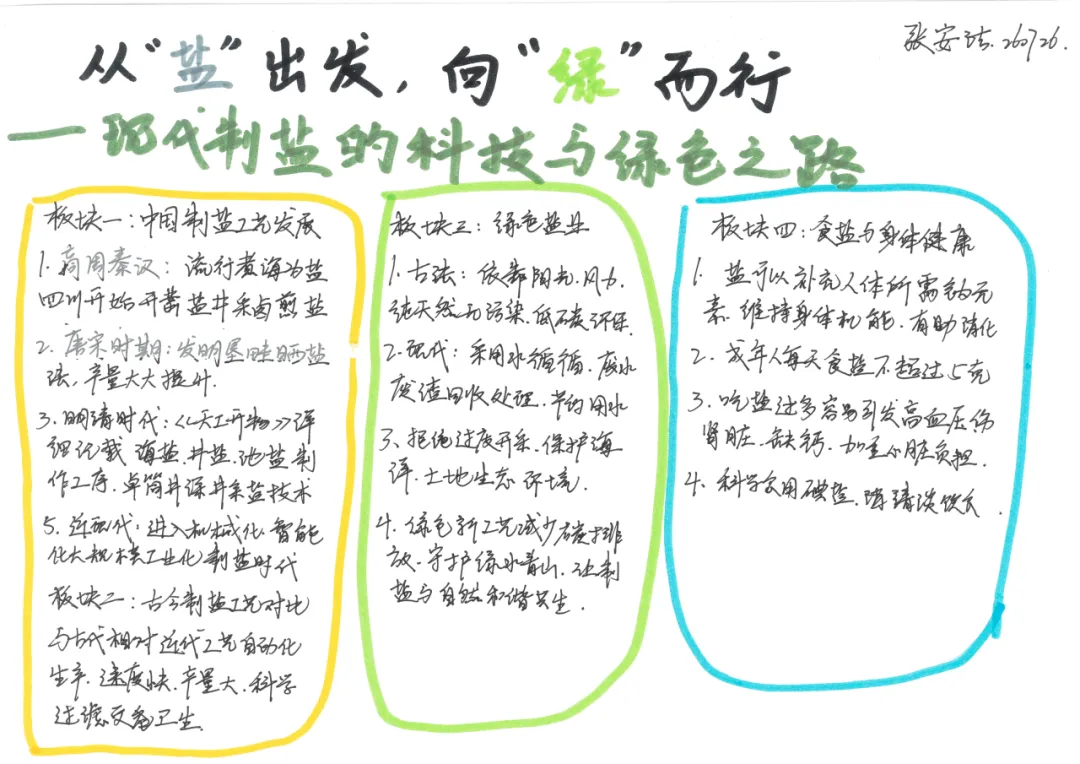 张安 260726.
从“盐”出发，向“绿”而行
——现代制盐的科技与绿色之路
板块一：中国制盐工艺发展
1. 商周秦汉：流行煮海为盐
四川开始开凿盐井采卤煎盐
2. 唐宋时期：发明垦畦晒盐
法，产量大大提升.
3. 明清时代：《天工开物》详
细记载 海盐.井盐.池盐制
作工序.卓筒井深井采盐技术
5. 近现代：进入机械化.智能
化大规模工业化制盐时代
板块二：古今制盐工艺对比
与古代相对近代工艺自动化
生产.速度快.产量大.科学
过滤更备卫生.
板块三：绿色盐业
1. 古法：依靠阳光.风力.
纯天然无污染.低碳环保.
2. 现代：采用水循循.废水
废渣回收处理.节约用水
3、拒绝过度开采.保护海
洋.土地生态 环境.
4. 绿色新工艺减少碳排
放.守护绿水青山.让制
盐与自然和谐共生.
板块四：食盐与身体健康
1. 盐可以补充人体所需钠元
素.维持身体机能.有助消化
2. 成年人每天食盐不超过5克
3. 吃盐过多容易引发高血压伤
肾脏.缺钙.加重心脏负担.
4. 科学食用碘盐.清淡饮食.